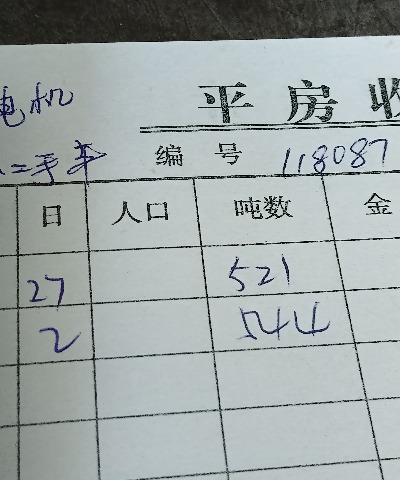 电机
平房收
二手车
编号 118087
日 人口 吨数 金
27 521
2 544